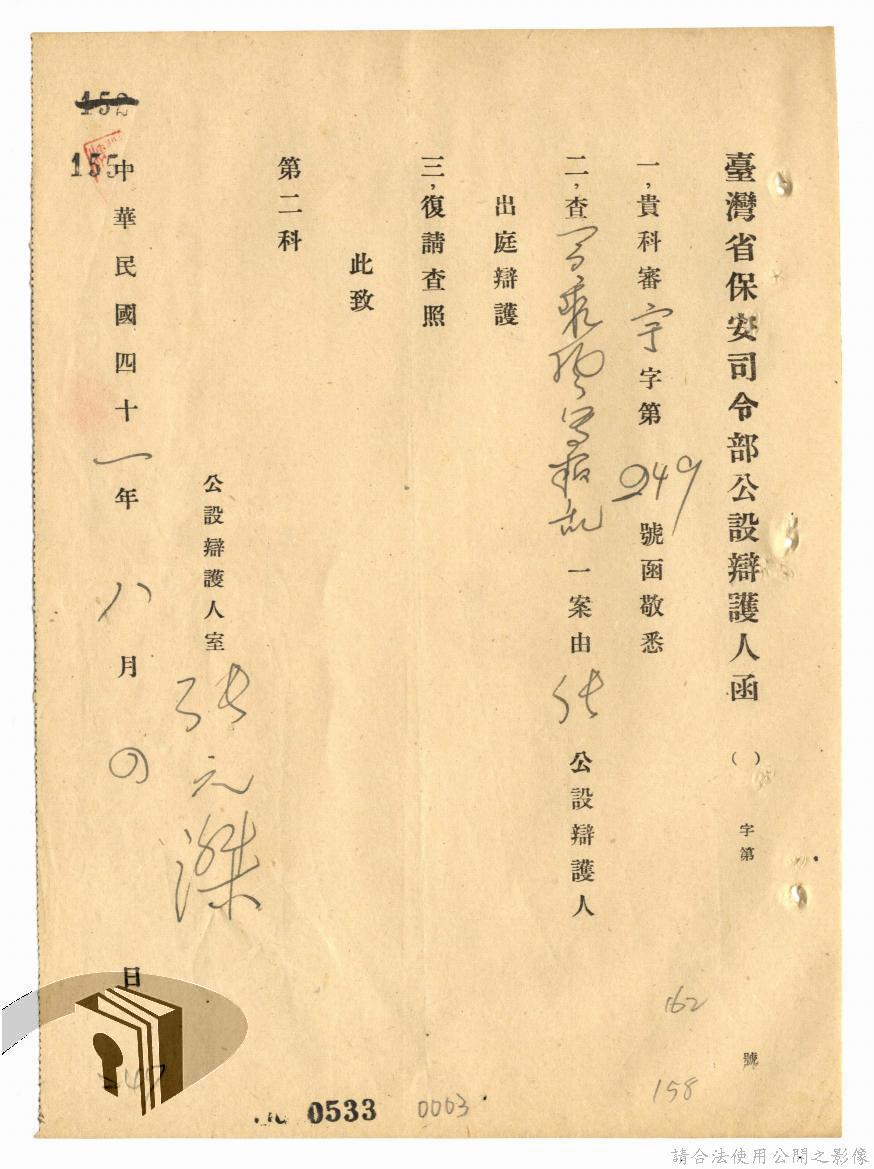 臺灣省保安司令部公設辯護人函 ( ) 字第 號
一,貴科審 字第 249 號函敬悉
二,查 一案由 張 公設辯護人
出庭辯護
三,復請查照
此致
第二科
公設辯護人室 張元傑
中華民國四十一年 八月 四 日
152
155
162
158
0533
0003
請合法使用公開之影像